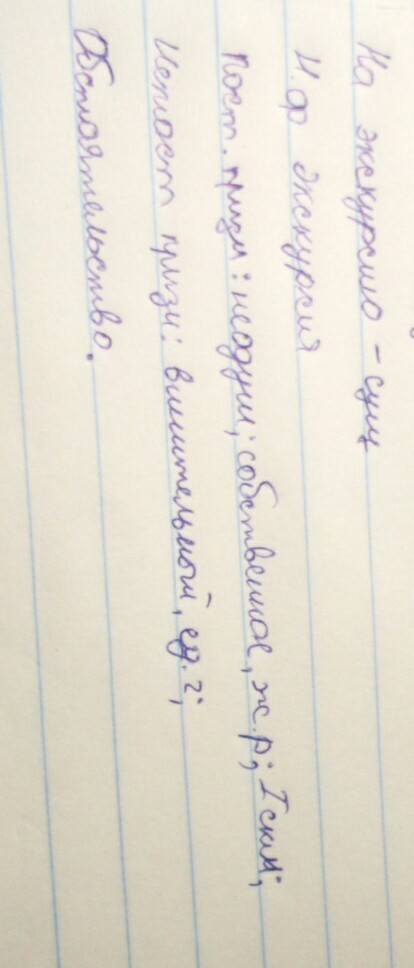 На экскурсию - сущ
Н.ф экскурсия
Пост. призн: неодуш; собственное, ж.р; I скл;
Непост призн: винительный, ед.ч;
Обстоятельство.